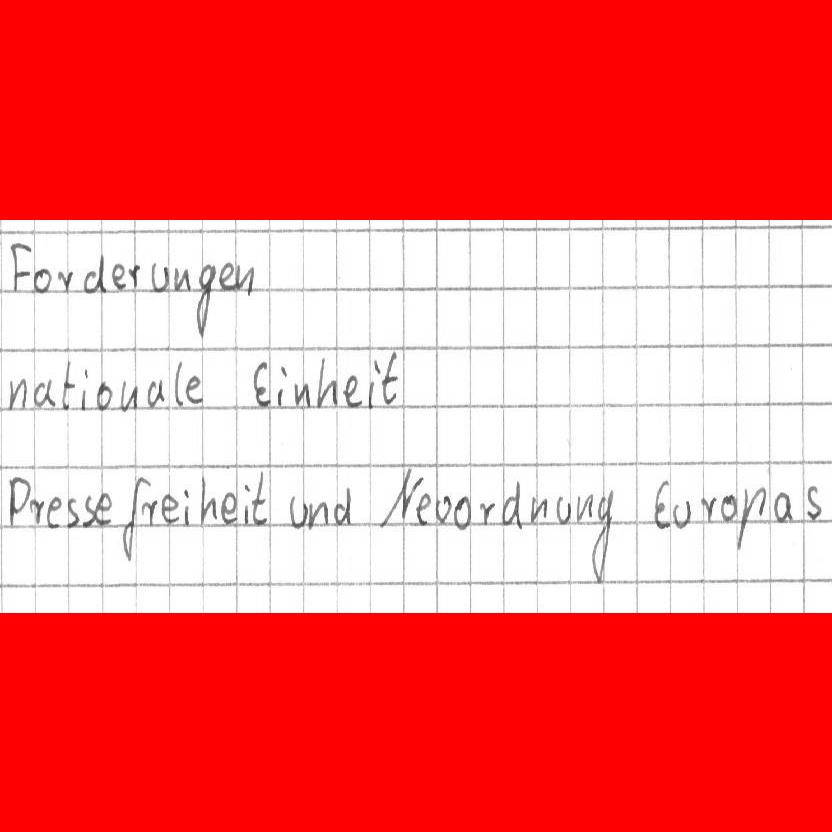 Forderungen
nationale Einheit
Pressefreiheit und Neuordnung Europas